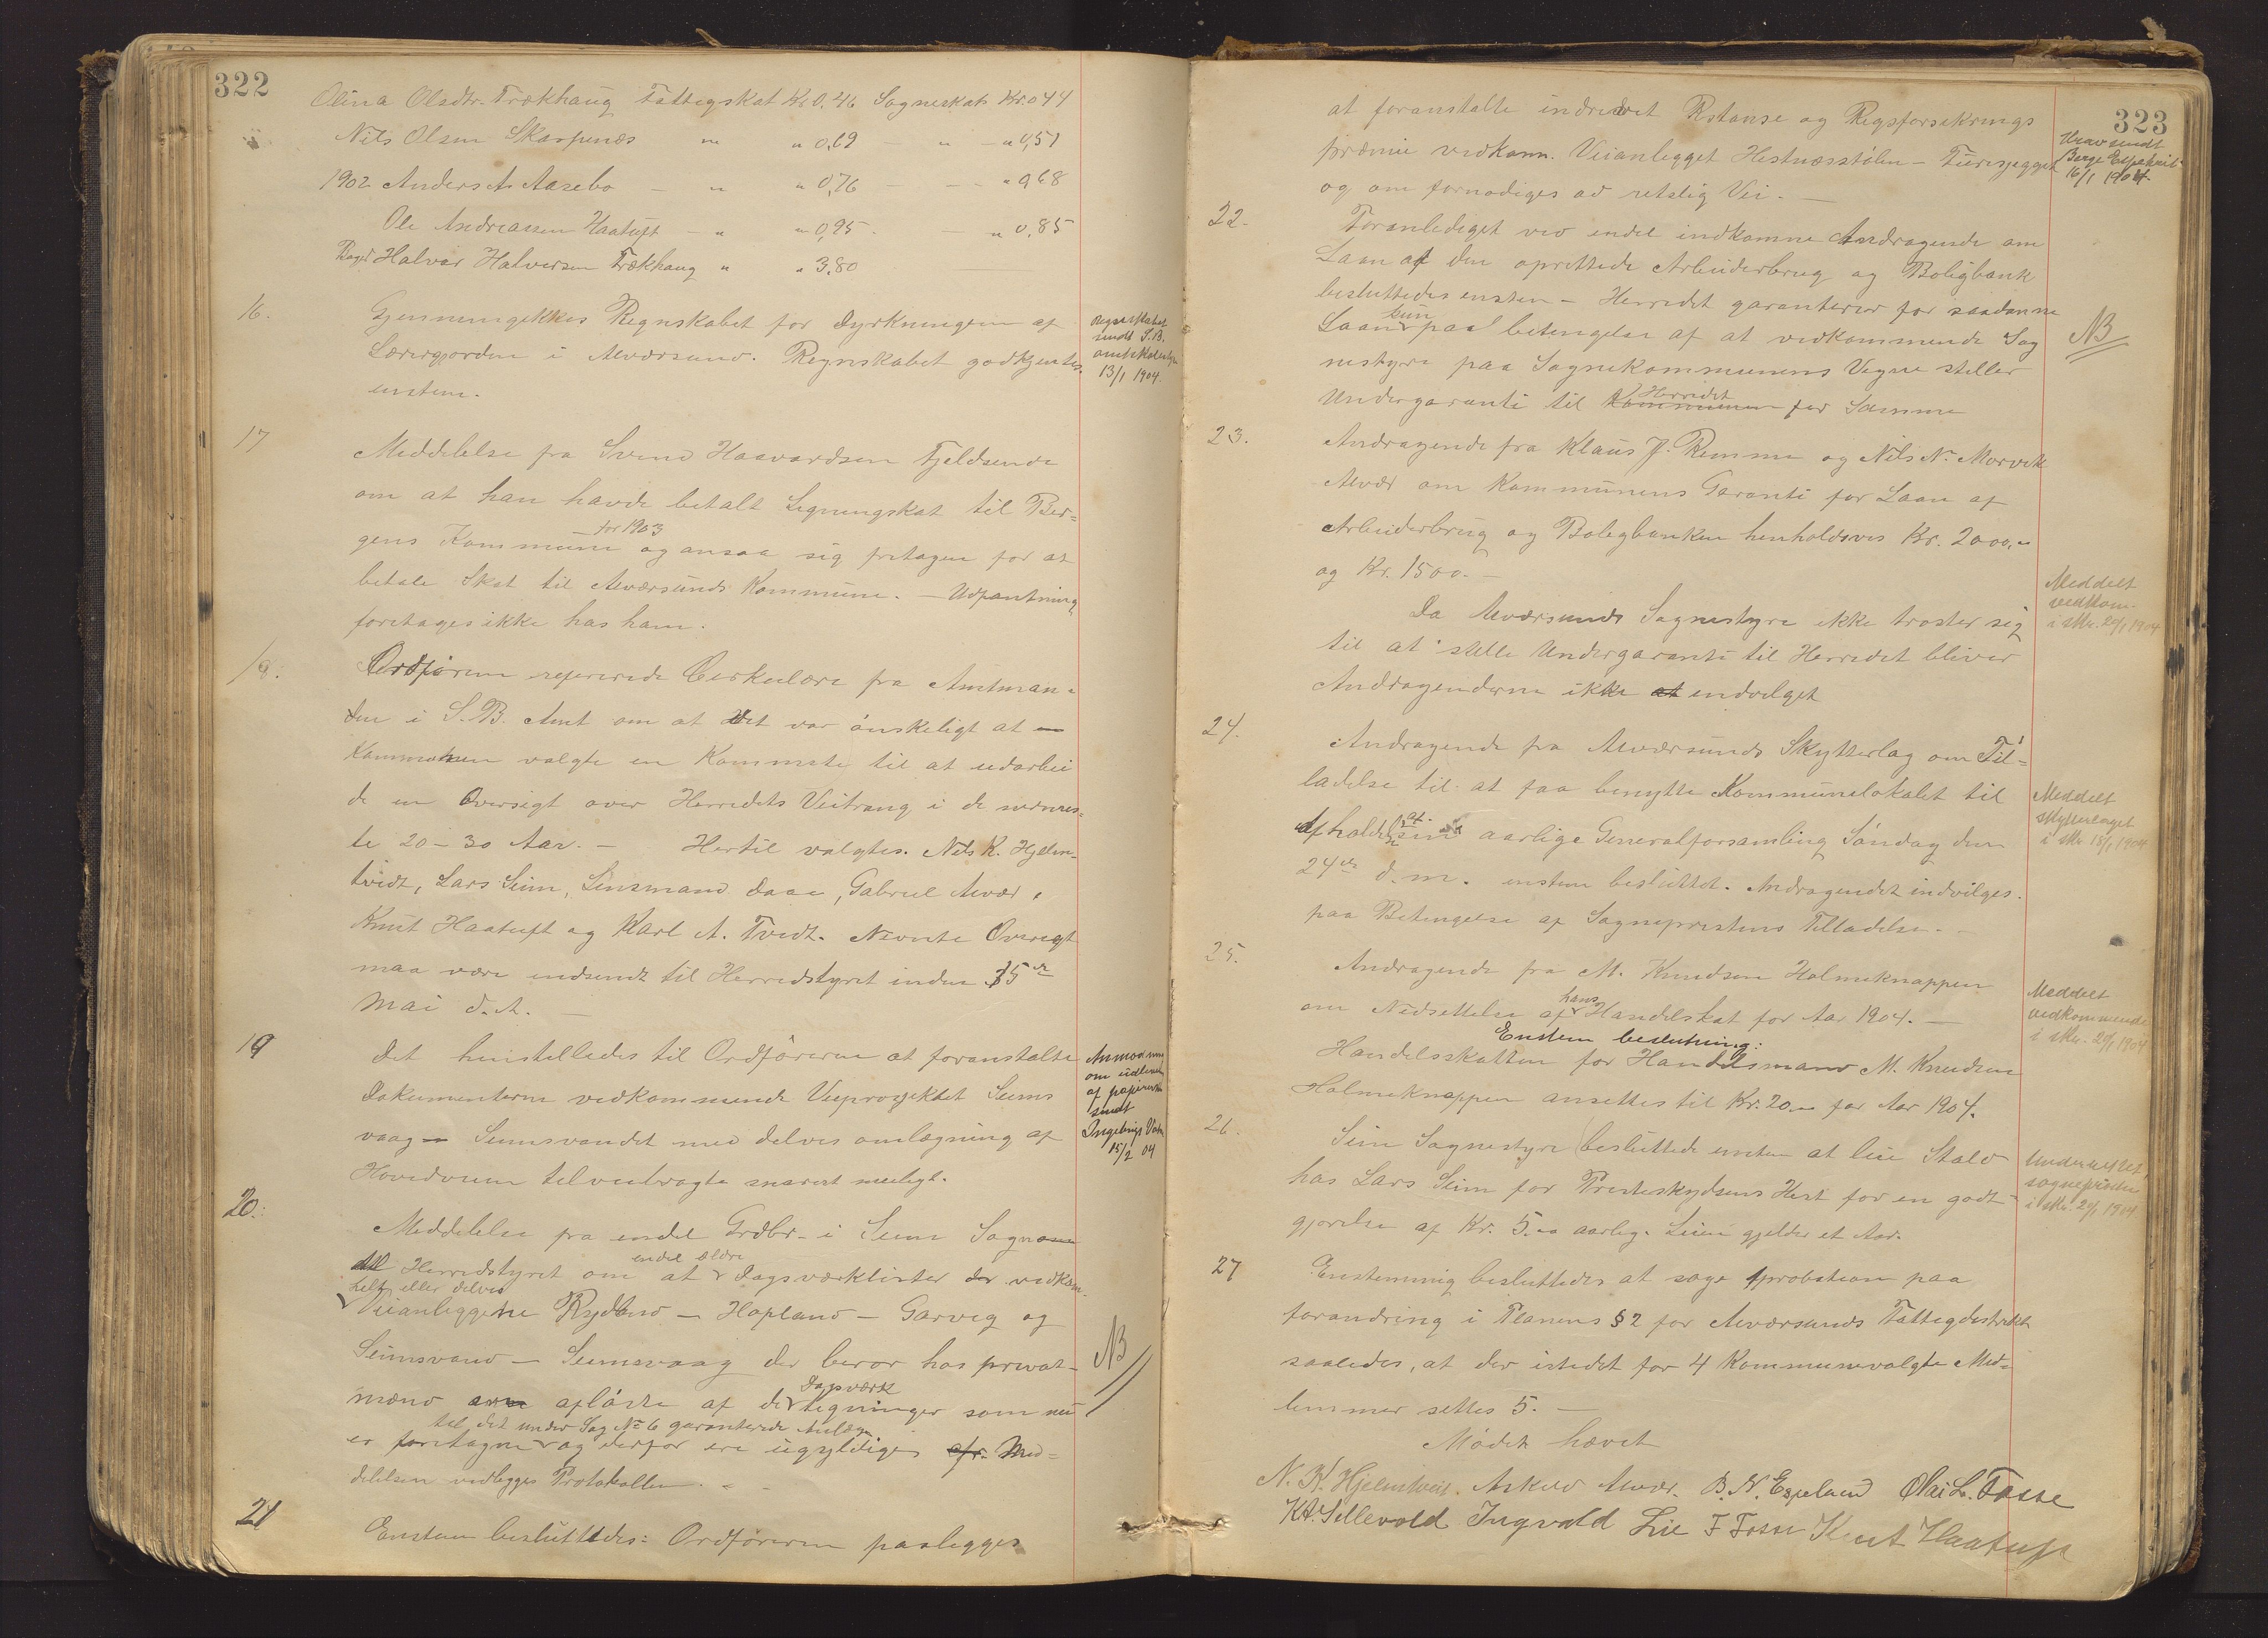 322
Olina Olsdtr. Trækhaug Fattigskat Kr 0,46 Sogneskat Kr. 0 44
Nils Olsen Skarpenæs " " 0,69 - " - " 0,51
1902 Anders As Aasebo - " " 0,76 - - - " 0,68
Ole Andreassen Haatuft - " " 0,95 - " 0,85
Halvor Halvorsen Trækhaug " " 3,80
16.
Gjennemgikkes Regnskabet for Dyrkningen af
Lærerjorden i Alværsund. Regnskabet godkjentes
enstem.
Regnskabet
sendt S.B.
amtskolestyre
13/1 1904.
17
Meddelelse fra Svend Haavardsen Fjeldsende
om at han havde betalt Ligningskat til Ber=
gens Kommune for 1903 og ansaa sig fritagen for at
betale Skat til Alværsunds Kommune. - Udpantning
foretages ikke hos ham.
18.
Ordføreren refererede Cirkulære fra Amtman=
den i S. B. Amt om at det var ønskeligt at
Kommunen valgte en Kommite til at udarbei
de en Oversigt over Herredets Veitrang i de nærmes=
te 20-30 Aar. - Hertil valgtes. Nils K. Hjelm-
tvidt, Lars Seim, Lensmand Daae, Gabriel Alvær,
Knut Haatuft og Karl A. Tvedt. Nævnte Oversigt
maa være indsendt til Herredstyret inden 15de
Mai d. A. -
19
Det henstilledes til Ordføreren at foranstalte
Dokumenterne vedkommende Veiprojektet Seims
vaag - Seimsvandet med delvis omlægning af
Hovedveien tilveiebragte snarest muligt.
Anmodning
om udlevering
af papirerne
sendt
Ingebrigt
15/2 04
20.
Meddelelse fra endel Grdbr. i Seim Sogn
til Herredstyret om at endel ældre Dagsværklister vedkom.
helt eller delvis
Veianleggene Rydland - Hopland - Garvig og
Seimsvand - Seimsvaag der beror hos privat-
mænd afløste af de Dagsværk ligninger som nu
til det under Sag No 6 garanterede Anlæg
er foretagne og derfor ere ugyldige. Med=
delelsen vedlegges Protokollen. -
NB
21
Enstem besluttedes: Ordføreren paalegges
323
at foranstalte inddrevet Restanse og Regsforsekrings
præmie vedkom. Veianlegget Hestnesstølen - Turesjegget
og om fornødiges ad retslig Vei. -
Krav sendt
Berge Espetveit
16/1 1904.
22.
Foranlediget ved endel indkomne Andragende om
Laan af den oprettede Arbeiderbrug og Boligbank
besluttedes enstem - Herredet garanterer for saadanne
Laan kun paa betingelse af at vedkommende Sog
nestyre paa Sognekommunens Vegne stiller
Undergaranti til Kommunen Herredet for Samme
NB
23.
Andragende fra Klaus J. Remme og Nils N. Morvik
Alvær om Kommunens Garanti for Laan af
Arbeiderbrug og Boligbanken henholdsvis Kr. 2000,-
og Kr. 1500. -
Da Alværsunds Sognestyre ikke trøster sig
til at stille Undergaranti til Herredet bliver
Andragenderne ikke at indvilget
Meddelt
vedkom.
i skr. 20/1 1904
24.
Andragende fra Alværsunds Skytterlag om Til=
ladelse til at faa benytte Kommunelokalet til
Afholdelse af sin aarlige Generalforsamling Søndag den
24de d. m. enstem besluttet. Andragendet indvilges.
paa Betingelse af Sogneprestens Tilladelse. -
Meddelt
skytterlaget
i skr 18/1 1904
25.
Andragende fra M. Knudsen Holmeknappen
om Nedsettelse af hans Handelskat for Aar 1904. -
Enstem beslutning:
Handelsskatten for Handelsmand M. Knudsen
Holmeknappen ansettes til Kr. 20.- for Aar 1904.
Meddelt
vedkommende
i skr. 20/1 1904
26.
Seim Sognestyre besluttede enstem at leie Stald
hos Lars Seim for Presteskydsens Hest for en godt-
gjørelse af Kr. 5.- aarlig. Leien gjelder et Aar.
Underrettet
sognepresten
i skr. 20/1 1904
27
Enstemmig besluttedes at søge Aprobation paa
forandring i Planens § 2 for Alværsunds Fattigdistrikt
saaledes, at der istedet for 4 Kommunevalgte Med=
lemmer settes 5. -
Mødet hævet
N. K. Hjelmtveit. Askild Alvær. B. N. Espeland Olai L. Fosse
K A. Sellevold Ingvald Lie F Fosse Knut Haatuft